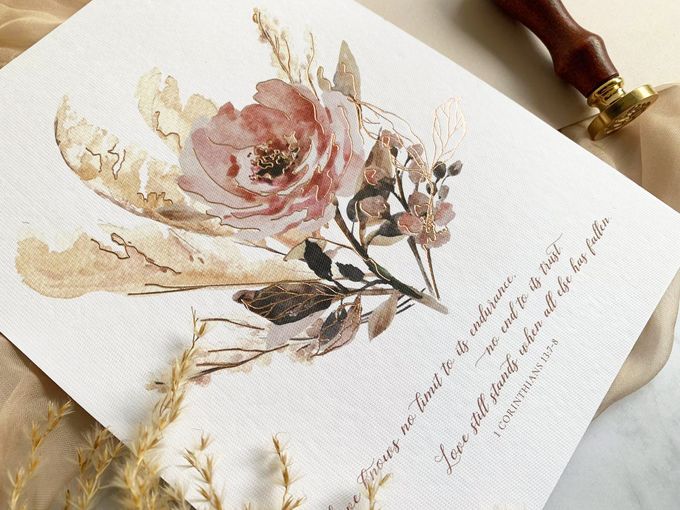 knows no limit to its endurance,
no end to its trust.
Love still stands when all else has fallen
1 CORINTHIANS 13:7-8